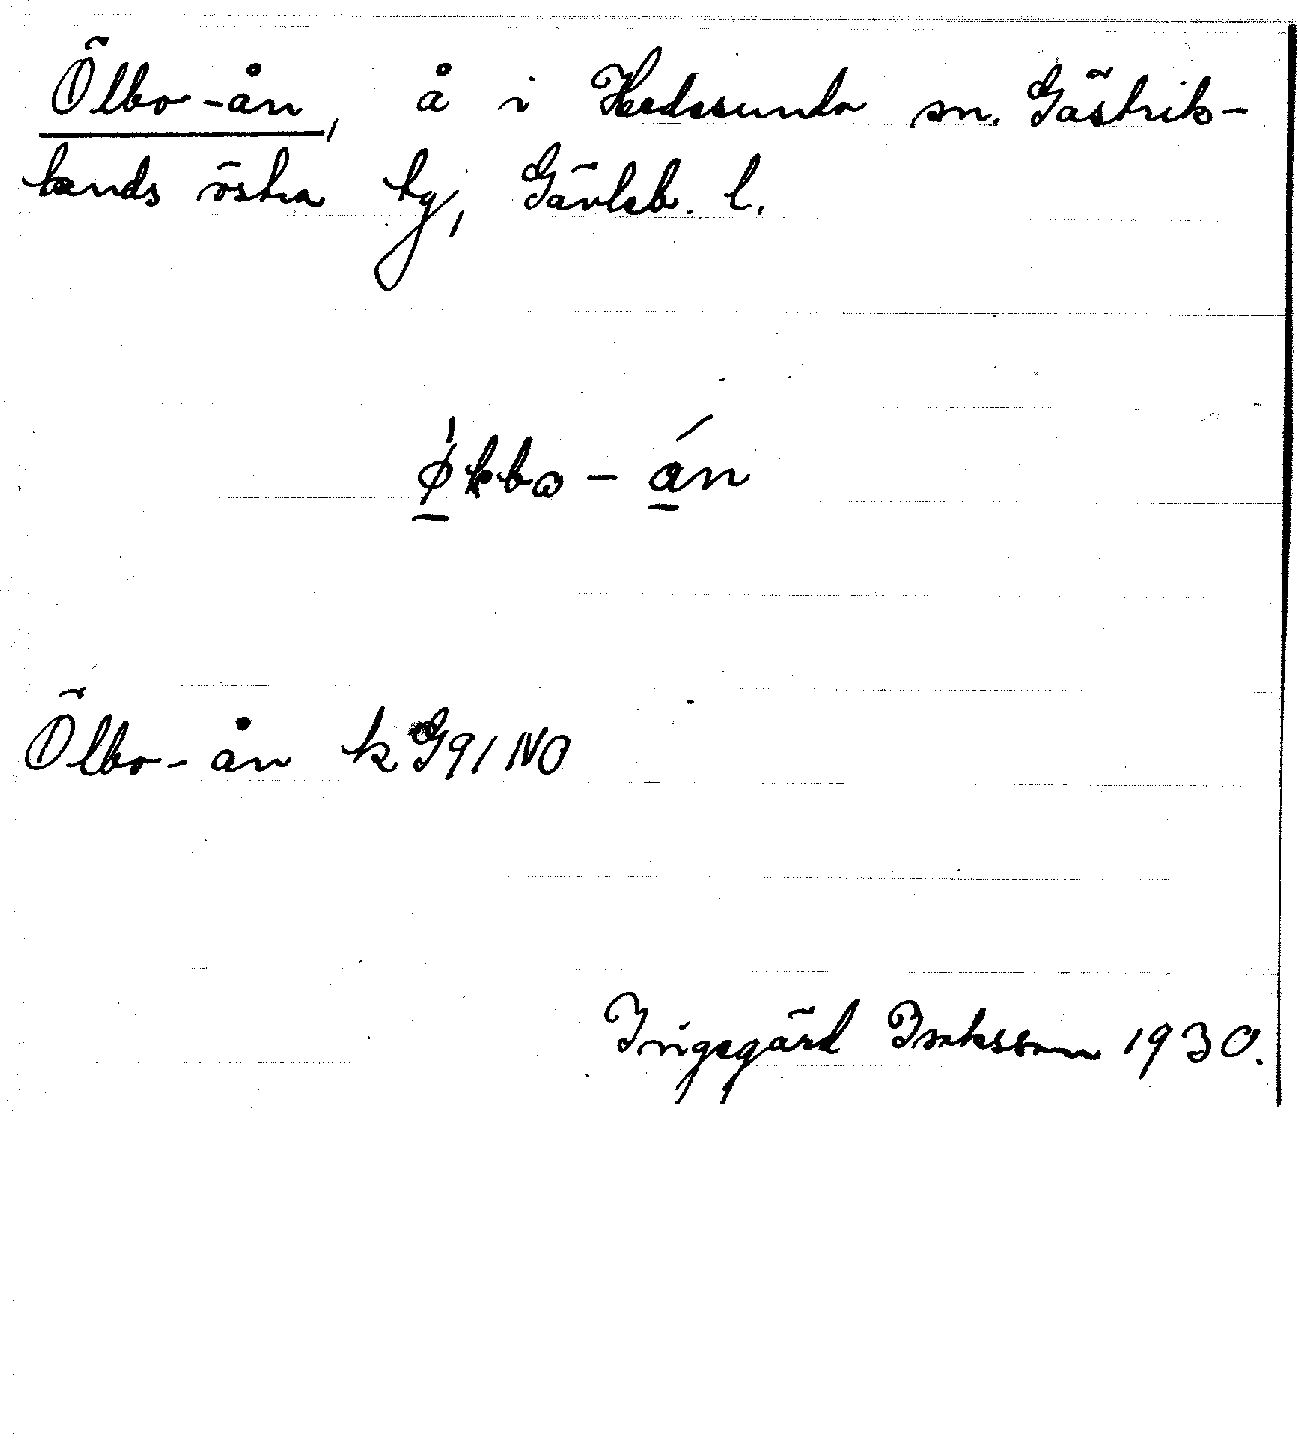 Ölbo-ån, å i Hedesunda sn. Gästrik-
lands östra tg, Gävleb. l.
Ölbo-ån k G91 NO
Ingegärd Isaksson 1930.